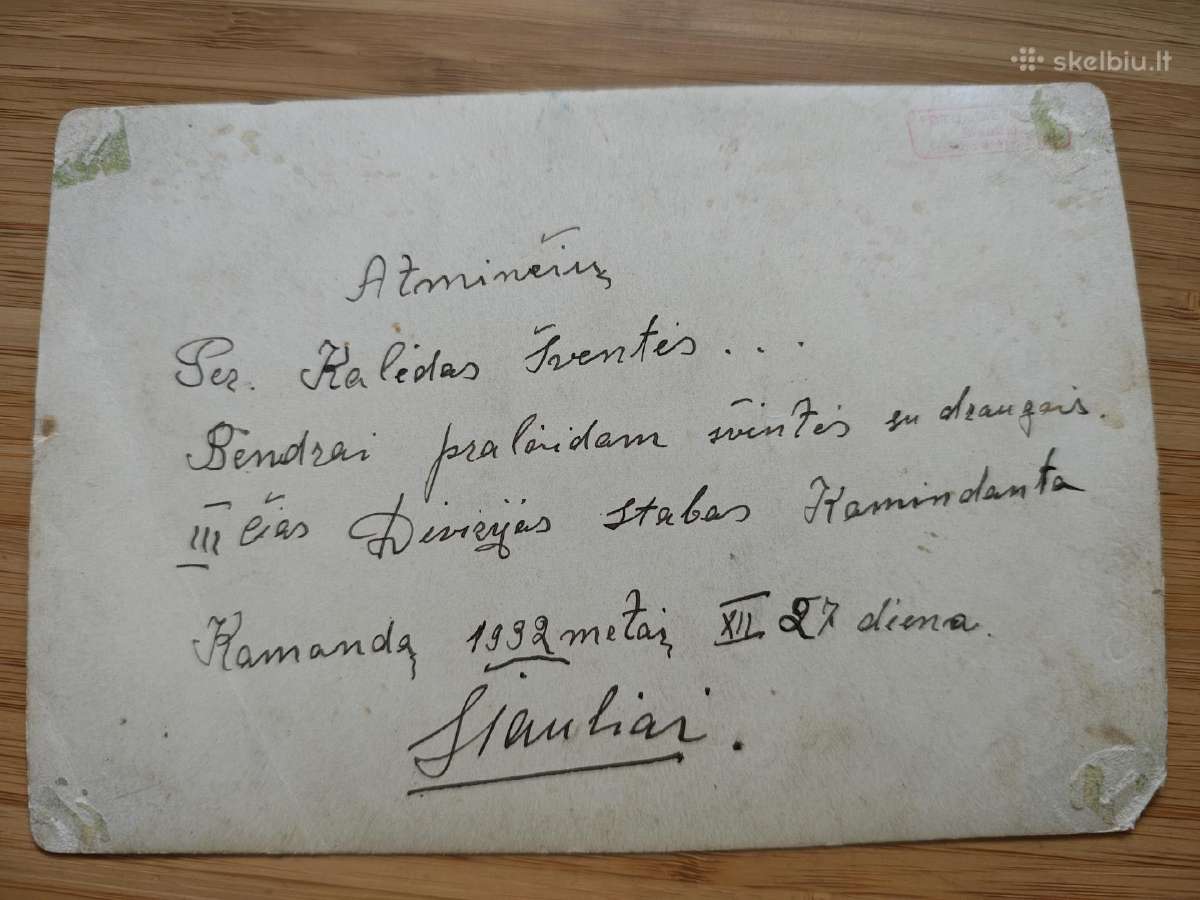 skelbiu.lt
Atminčių
Per. Kalėdas Šventės...
Bendrai praleidam šventės su draugais.
III čias Divizijas stabas Kamindanta
Kamandą 1932 metaį XII 27 diena.
Šiauliai.